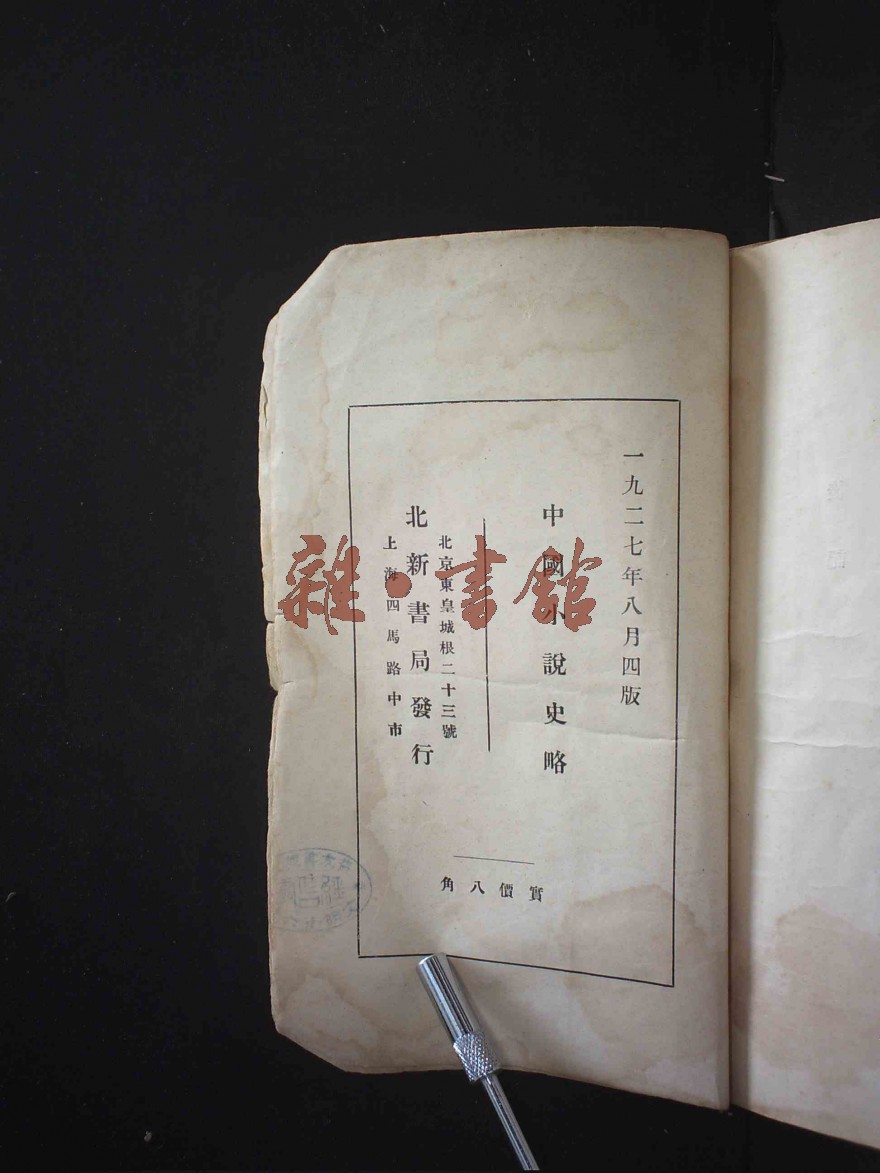 一九二七年八月四版
中國小說史略
北京東皇城根二十三號
北新書局發行
上海四馬路中市
實價八角
雜·書館